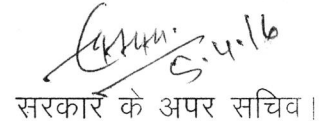 5.4.16
सरकार के अपर सचिव।